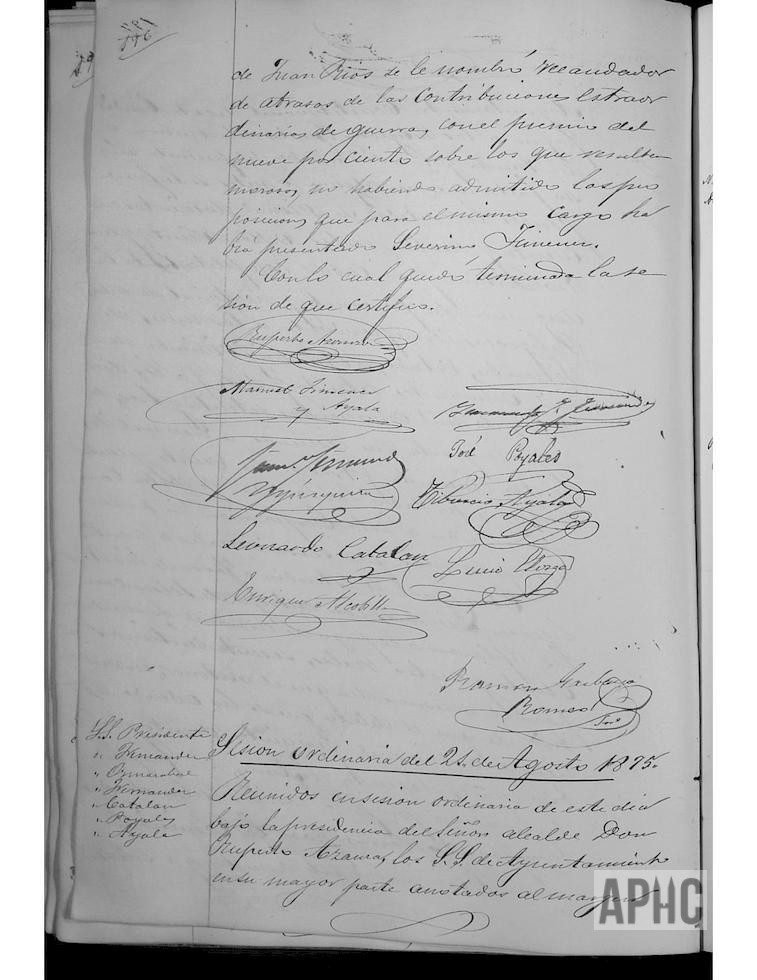 de Juan Rios se le nombró recaudador
de atrasos de las Contribuciones Estraor
dinarias de guerra, con el premio del
nueve por ciento sobre los que resulten
morosos, no habiendo admitido las pro
posiciones que para el mismo cargo ha
bia presentado Severino Jimenez.
Con lo cual quedó terminada la se
sion de que certifico.
Ruperto Azamra
Manuel Jimenez
y Ayala
José Poyales
Tiburcio Ayala
Leonardo Catalan
Lucio
Enrique Alcobilla
Ramon
Romeo
Srio
S.S. Presidente
" Fernandez
"
" Fernandez
" Catalan
" Poyales
" Ayala
Sesion ordinaria del 21 de Agosto 1875.
Reunidos en sesion ordinaria de este dia
bajo la presidencia del Señor alcalde Don
Ruperto Azamra, los S.S. de Ayuntamiento
en su mayor parte anotados al margen
APHC